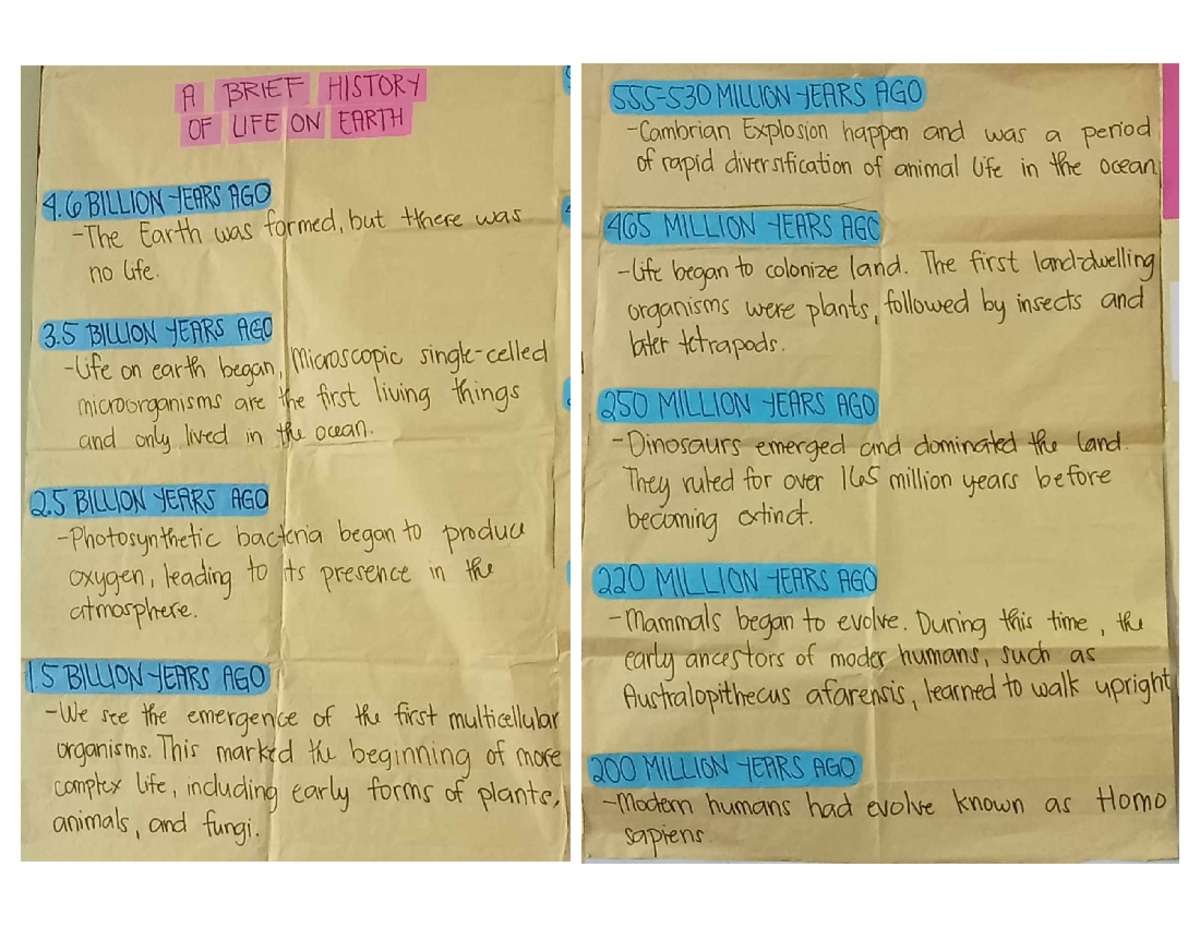 A BRIEF HISTORY
OF LIFE ON EARTH
4.6 BILLION YEARS AGO
-The Earth was formed, but there was
no life.
3.5 BILLION YEARS AGO
-Life on earth began, Microscopic single-celled
microorganisms are the first living things
and only lived in the ocean.
2.5 BILLION YEARS AGO
-Photosynthetic bacteria began to produce
oxygen, leading to its presence in the
atmosphere.
1.5 BILLION YEARS AGO
-We see the emergence of the first multicellular
organisms. This marked the beginning of more
complex life, including early forms of plants,
animals, and fungi.
555-530 MILLION YEARS AGO
-Cambrian Explosion happen and was a period
of rapid diversification of animal life in the ocean
465 MILLION YEARS AGO
-Life began to colonize land. The first land-dwelling
organisms were plants, followed by insects and
later tetrapods.
250 MILLION YEARS AGO
-Dinosaurs emerged and dominated the land.
They ruled for over 165 million years before
becoming extinct.
220 MILLION YEARS AGO
-Mammals began to evolve. During this time, the
early ancestors of moder humans, such as
Australopithecus afarensis, learned to walk upright
200 MILLION YEARS AGO
-Modern humans had evolve known as Homo
sapiens.